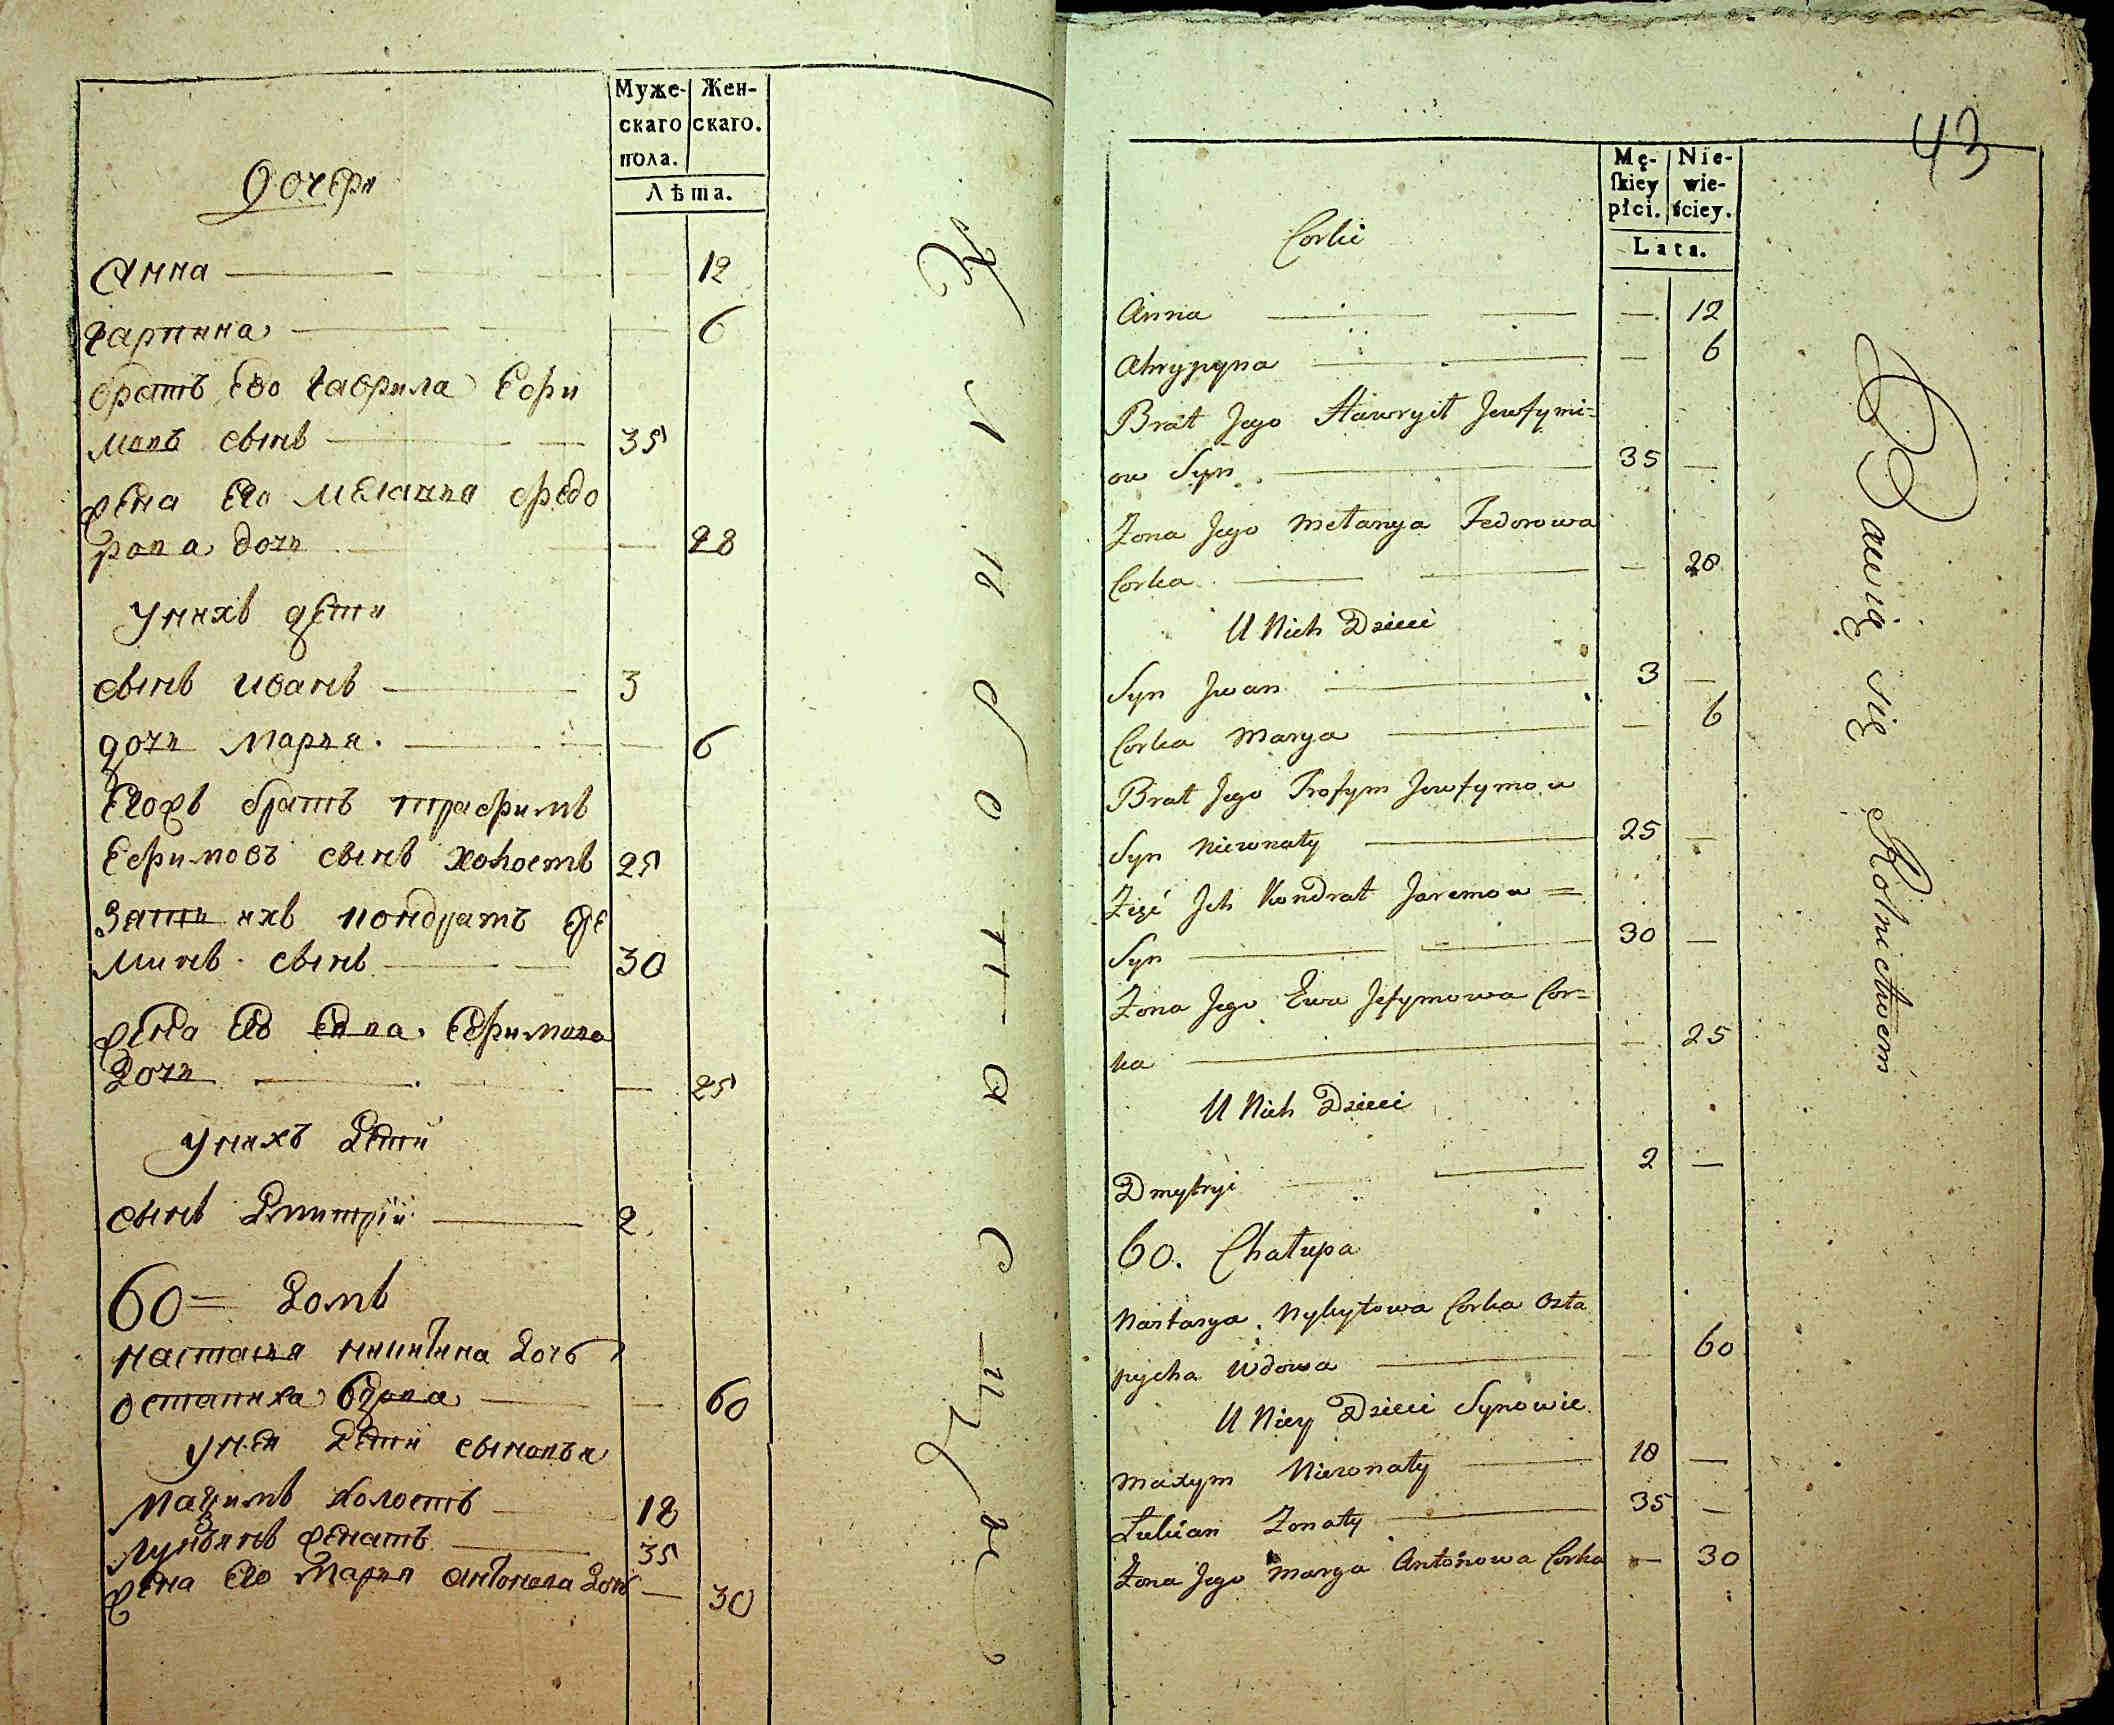 Муже- Жен-
скаго скаго.
пола.
Лѣта.
Дочери
Анна 12
Гарпина 6
братъ Ево Гаврила Ефи
мовъ сынъ 35
жена Его Меланья Федо
рова дочь 28
У нихъ дети
сынъ Иванъ 3
дочь Марья 6
Егожъ братъ трафимъ
Ефимовъ сынъ холостъ 25
Зать ихъ Кондратъ Ере
минъ сынъ 30
жена Его Евва Ефимова
Дочь 25
У нихъ Дети
сынъ Дмитрій 2
60= Домъ
Настасья Никитина Дочь
остапиха вдова 60
У ней Дети сыновья
Мацимъ холостъ 18
Лукьянъ женатъ 35
жена Его Марья Антонова Дочь 30
43
Mę- Nie-
skiey wie-
płci. ściey.
Lata.
Corki
Anna 12
Ahrypyna 6
Brat Jego Hawrył Jewfymi=
ow Syn 35
Zona Jego Metanya Fedorowa
Corka 28
U Nich Dzieci
Syn Jwan 3
Corka Marya 6
Brat Jego Trofym Jewfymow
Syn Niezonaty 25
Zięć Jch Kondrat Jaremow =
Syn 30
Zona Jego Ewa Jefymowa Cor=
ka 25
U Nich Dzieci
Dmytryi 2
60. Chałupa
Nastasya Nykytowa Corka Osta
pycha Wdowa 60
U Niey Dzieci Synowie
Maxym Niezonaty 18
Łukian Zonaty 35
Zona Jego Marya Antonowa Corka 30
Bawią się Rolnictwem